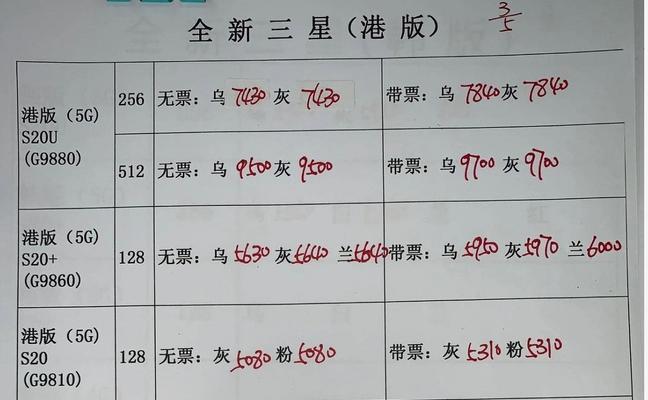 全新三星(港版)
3/5
港版 (5G)
S20U
(G9880)
256 无票：乌 7430 灰 7430 带票：乌 7840 灰 7840
512 无票：乌 9500 灰 9500 带票：乌 9700 灰 9700
港版 (5G)
S20+
(G9860)
128 无票：乌 5630 灰 5640 兰 5640 带票：乌 5950 灰 5970 兰 6000
港版 (5G)
S20
(G9810)
128 无票：灰 5080 粉 5080 带票：灰 5310 粉 5310